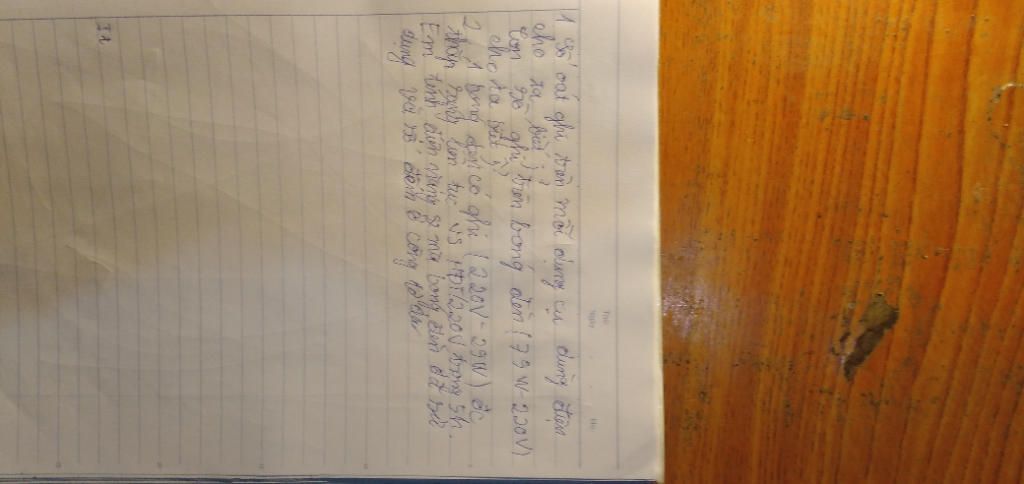 1 Số oát ghi trên mỗi dụng cụ dùng điện
cho ta biết gì?
Con số ghi trên bóng đèn (75W-220V)
cho ta biết gì?
2. 1 bóng đèn có ghi (220V-25W) đc
thắp sáng liên tục vs HĐT 220V trong 5h.
Tính điện năng mà bóng đèn đã sử
dụng và số đếm công tơ
Thứ
Ngày
No